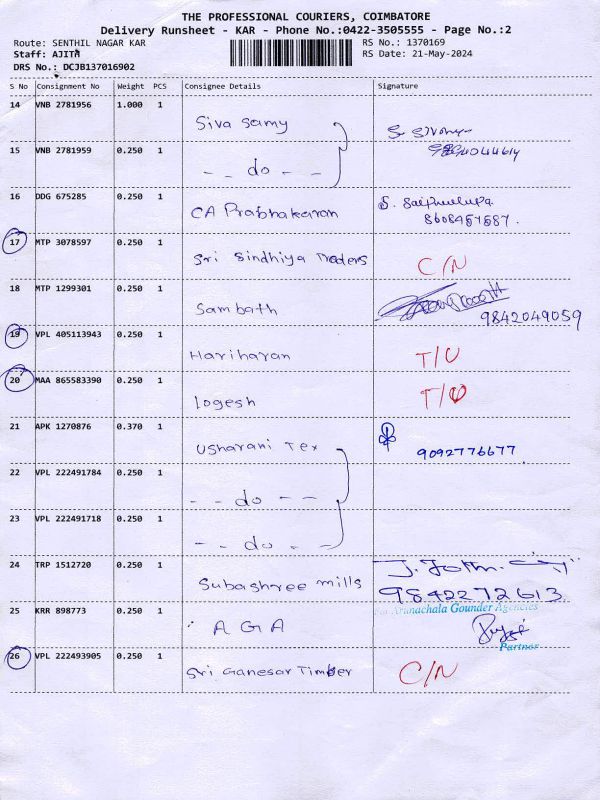 THE PROFESSIONAL COURIERS, COIMBATORE
Delivery Runsheet - KAR - Phone No.:0422-3505555 - Page No.:2
Route: SENTHIL NAGAR KAR
RS No.: 1370169
Staff: AJITH
RS Date: 21-May-2024
DRS No.: DCJB137016902
S No Consignment No Weight PCS Consignee Details Signature
14 VNB 2781956 1.000 1 Siva Samy
15 VNB 2781959 0.250 1 - - do - -
16 DDG 675285 0.250 1 CA Prabhakaran
17 MTP 3078597 0.250 1 Sri Sindhiya Traders C/N
18 MTP 1299301 0.250 1 Sambath 9842049059
19 VPL 405113943 0.250 1 Hariharan T/U
20 MAA 865583390 0.250 1 logesh T/U
21 APK 1270876 0.370 1 Usharani Tex 9092776677
22 VPL 222491784 0.250 1 - - do - -
23 VPL 222491718 0.250 1 - - do - -
24 TRP 1512720 0.250 1 Subashree mills 9842272613
25 KRR 898773 0.250 1 A G A
Arunachala Gounder Agencies
Partner
26 VPL 222493905 0.250 1 Sri Ganesar Timber C/N